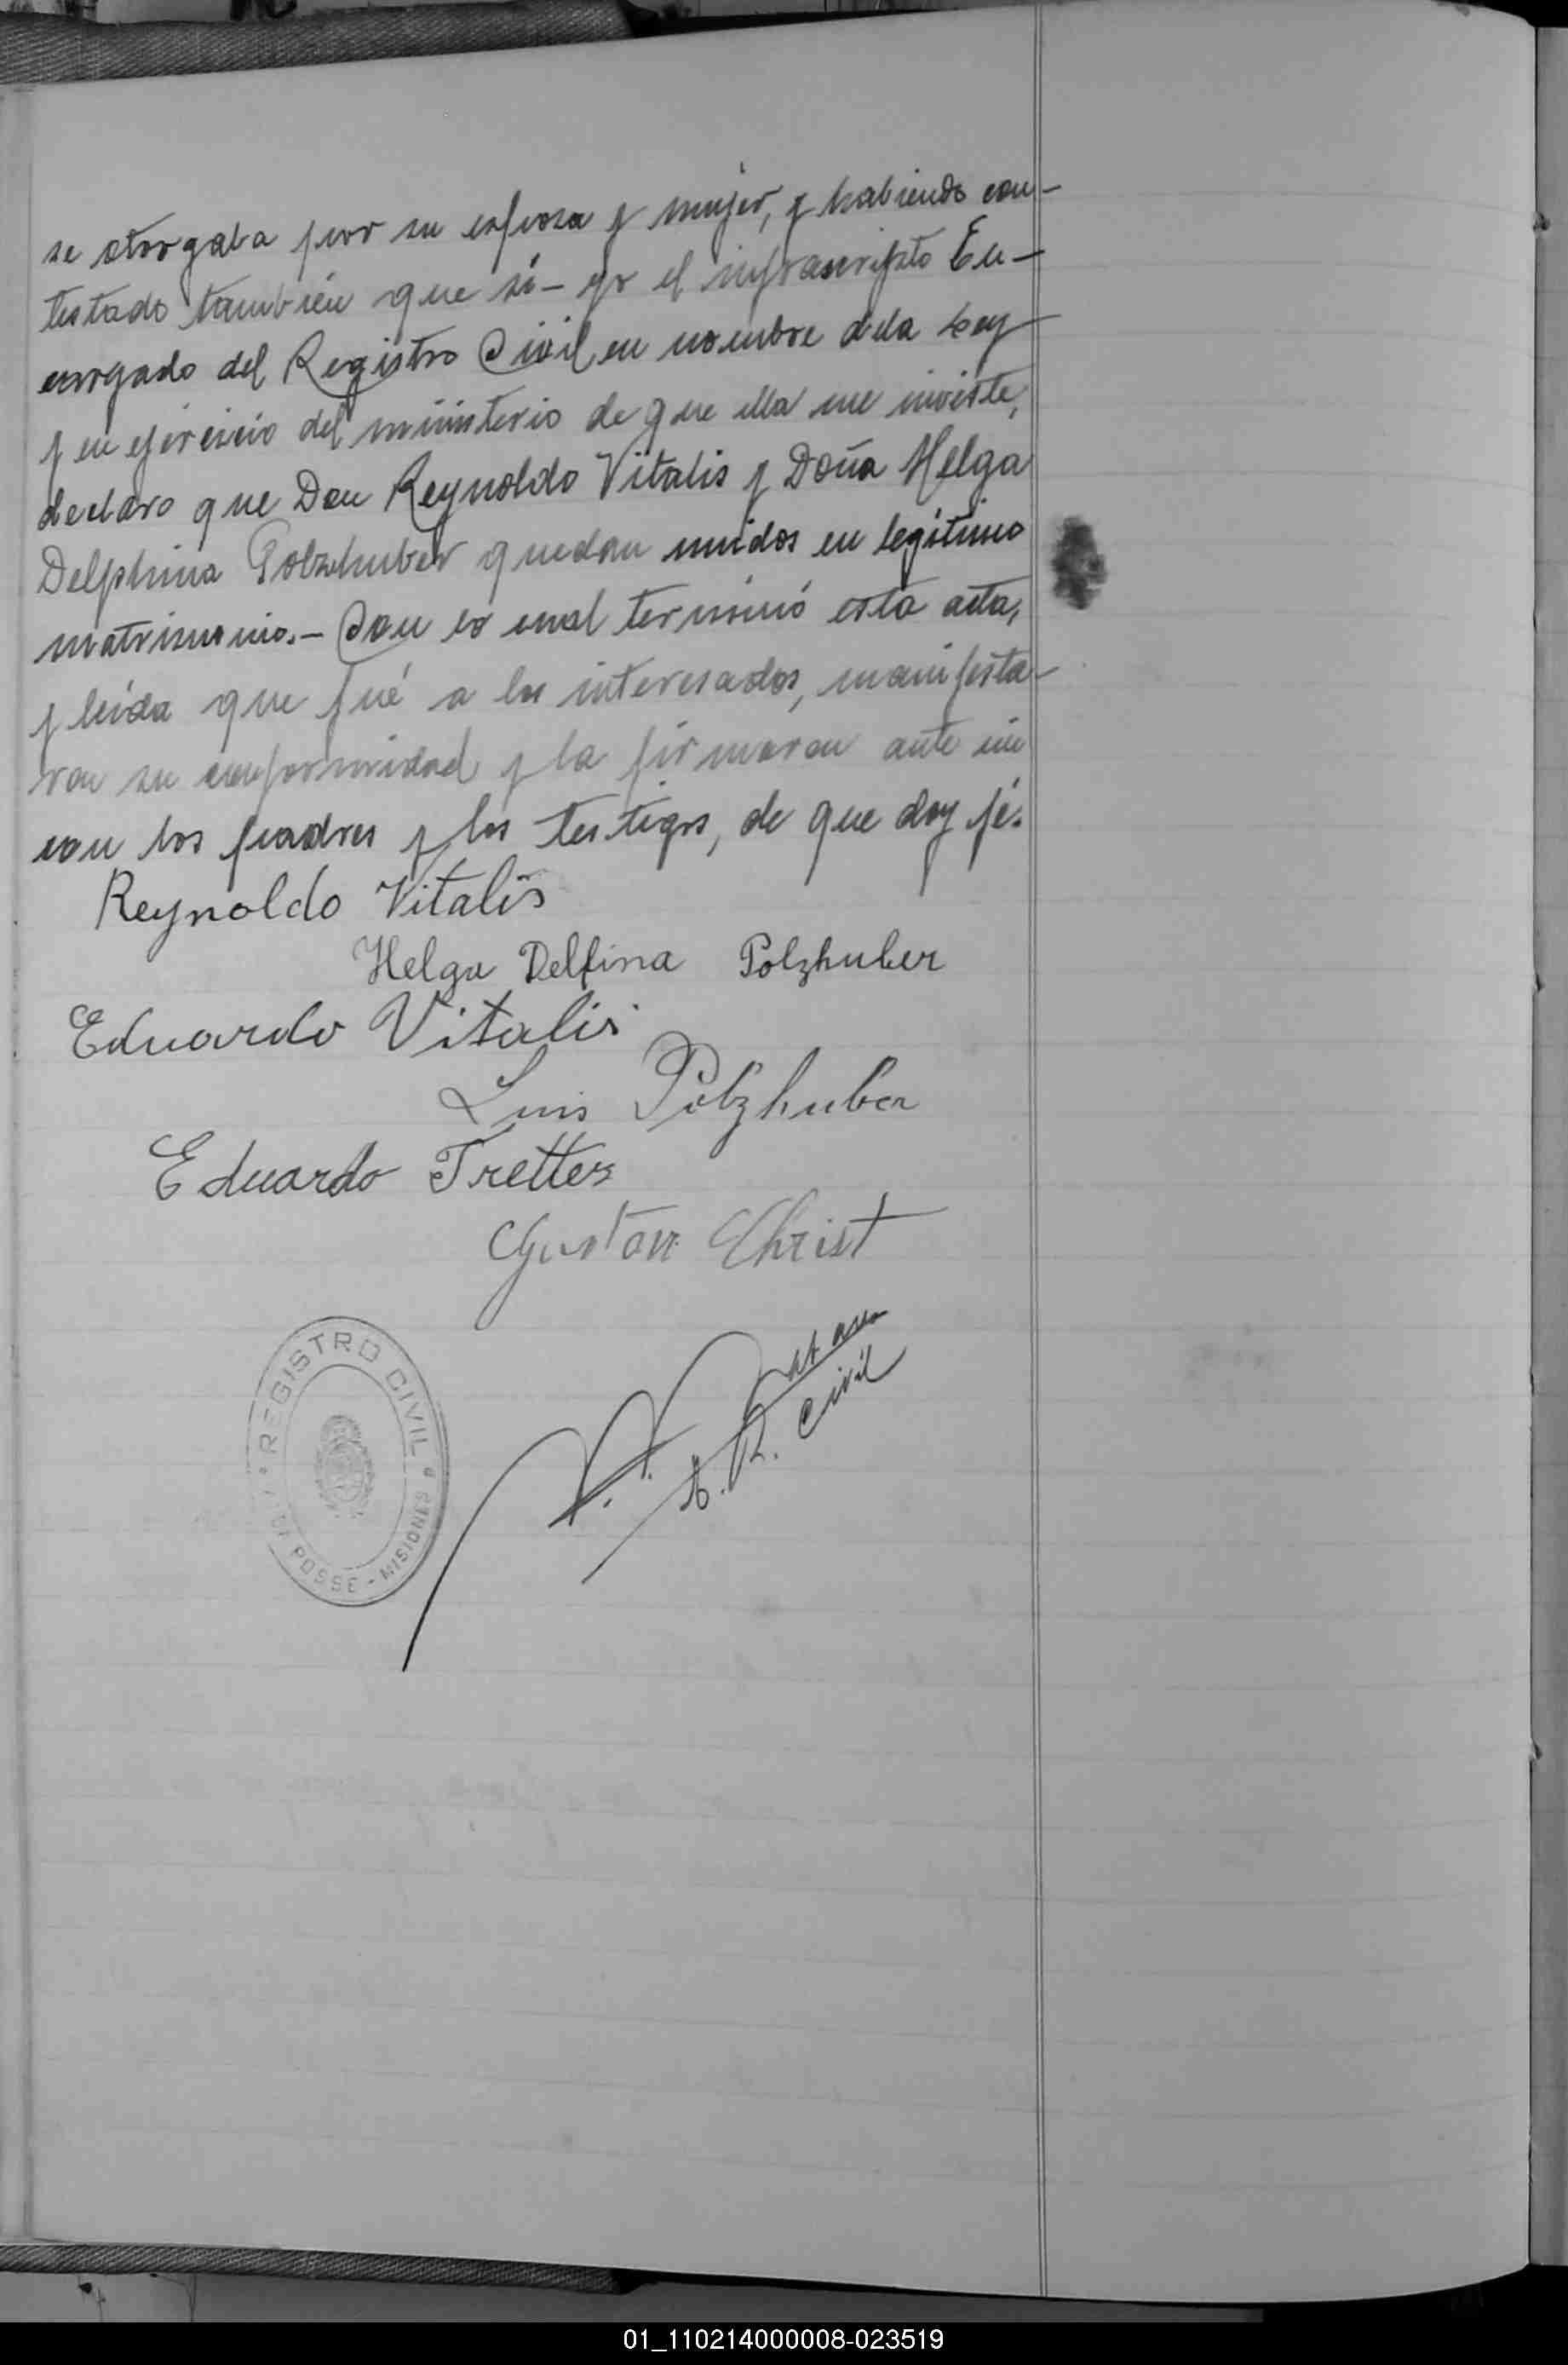 se otorgaba por su esposa y mujer, y habiendo con-
testado también que sí - yo el infrascripto En-
cargado del Registro Civil en nombre dela Ley
y en ejercicio del ministerio de que ella me inviste,
declaro que Don Reynoldo Vitalis y Doña Helga
Delphina Polzhuber quedan unidos en legítimo
matrimonio.- Con lo cual terminó esta acta,
y leída que fué a los interesados, manifesta-
ron su conformidad y la firmaron ante mi
con los padres y los testigos, de que doy fé.
Reynoldo Vitalis
Helga Delfina Polzhuber
Eduardo Vitalis
Luis Polzhuber
Eduardo Tretter
Gustav Christ
E. R. Civil
REGISTRO CIVIL
POSSE - MISIONES
01_110214000008-023519